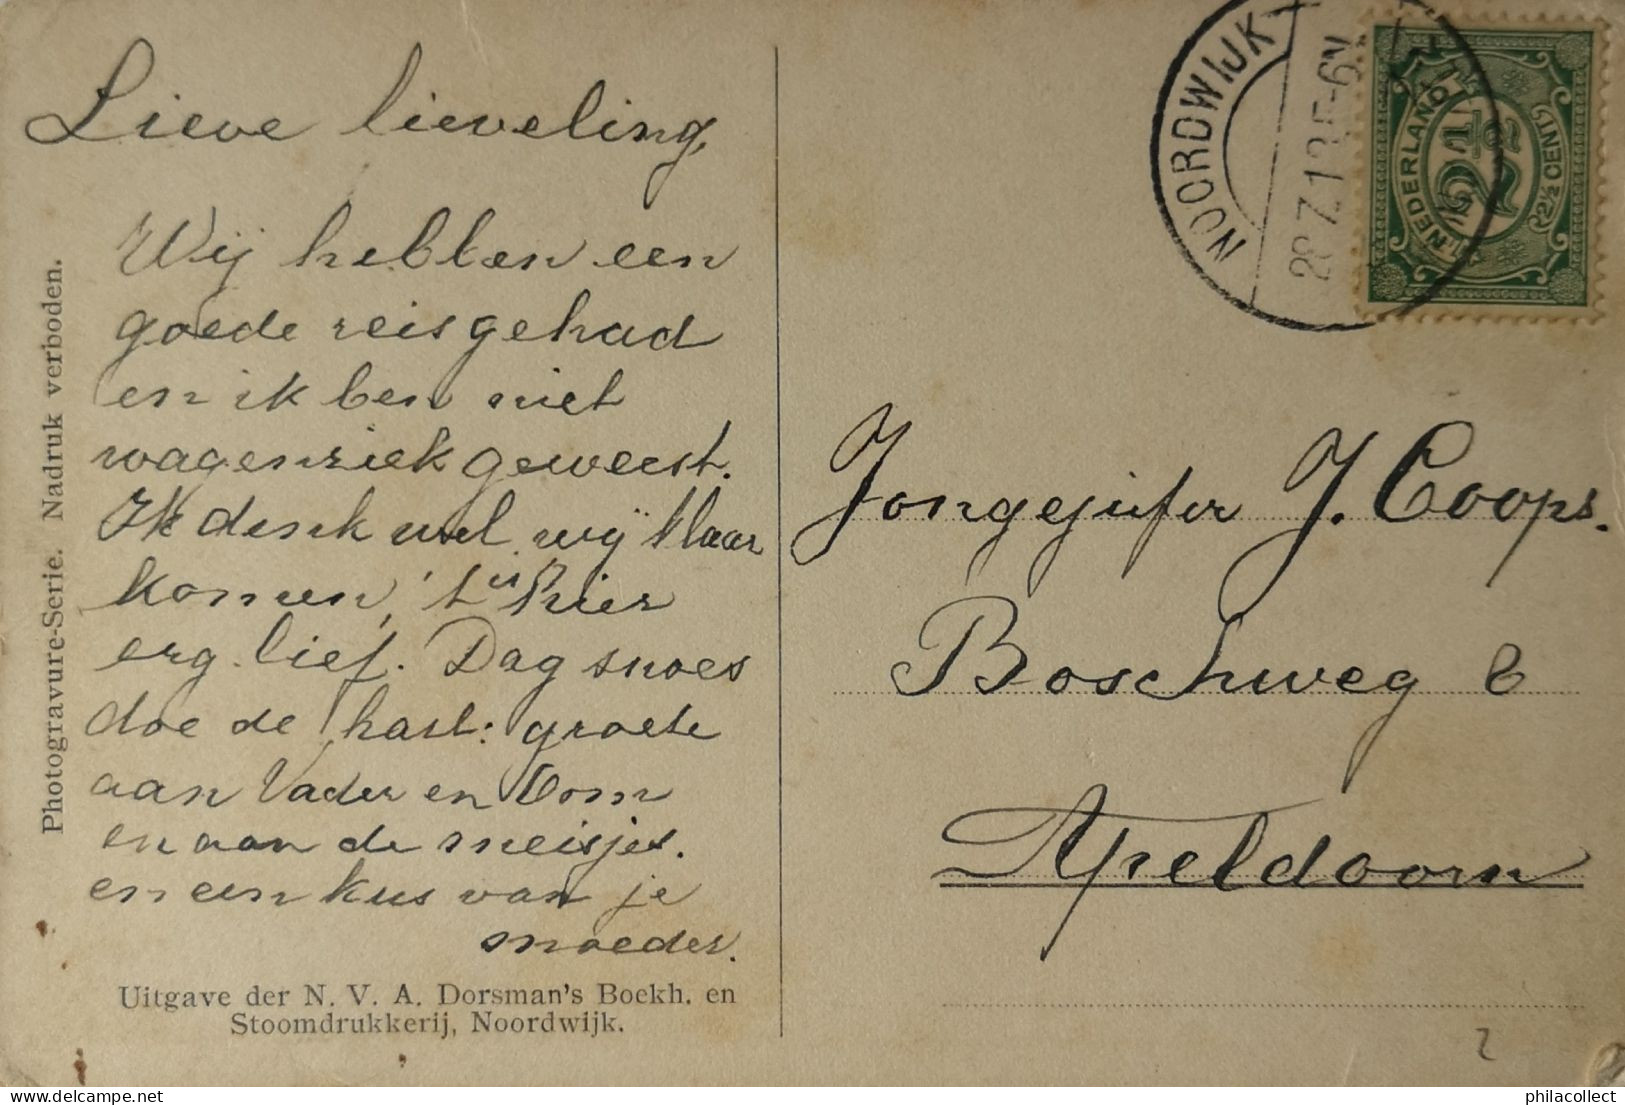 Lieve lieveling,
Wij hebben een
goede reis gehad
en ik ben niet
wagenziek geweest.
Ik denk wel wij klaar
komen, 't is hier
erg lief. Dag snoes
doe de hart: groete
aan Vader en Oom
en aan de meisjes.
en een kus van je
moeder.
Uitgave der N. V. A. Dorsman's Boekh. en
Stoomdrukkerij, Noordwijk.
Photogravure-Serie. Nadruk verboden.
NOORDWIJK
28 7 13 5-6N
NEDERLAND
2½
(2½ CENT)
Jongejufer J. Coops.
Boschweg 6
Apeldoorn
2
philacollect